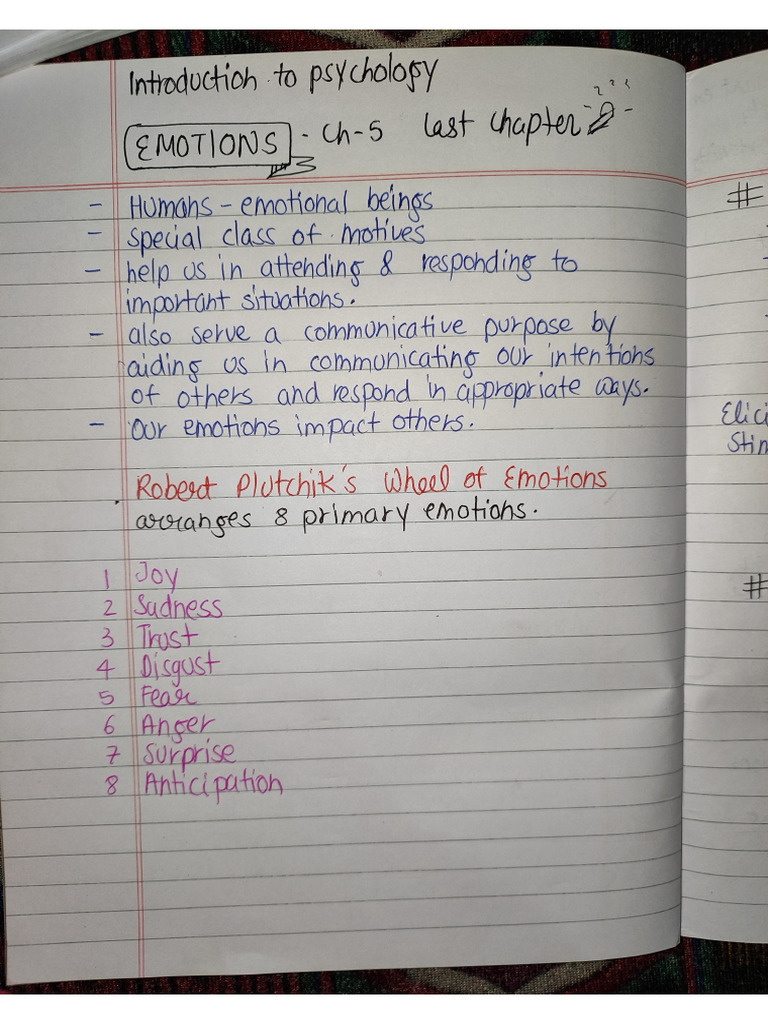 Introduction to psychology
EMOTIONS - Ch-5 last chapter
- Humans - emotional beings
- special class of motives
- help us in attending & responding to
important situations.
- also serve a communicative purpose by
aiding us in communicating our intentions
of others and respond in appropriate ways.
- our emotions impact others.
Robert Plutchik's Wheel of Emotions
arranges 8 primary emotions.
1 Joy
2 Sadness
3 Trust
4 Disgust
5 Fear
6 Anger
7 Surprise
8 Anticipation
#
Elici
Stim
#